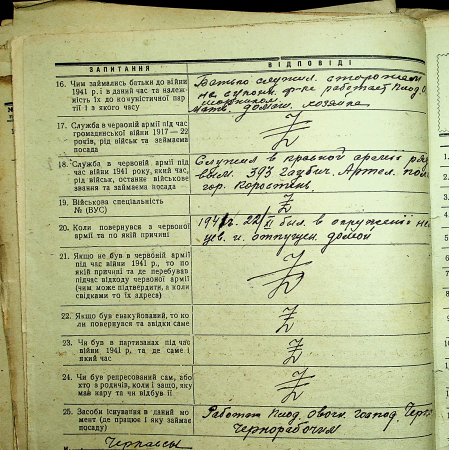 ЗАПИТАННЯ ВІДПОВІДІ
16. Чим займались батьки до війни
1941 р. і в даний час та належ-
ність їх до комуністичної пар-
тії і в якого часу
Батько служил сторожем
на сукон. ф-ке работает плод. о.
мать домаш. хозяйка
17. Служба в червоній армії під час
громадянської війни 1917 — 22
років, рід військ та займаєма
посада
18. Служба в червоній армії під
час війни 1941 року, який час,
рід військ, останнє військове
звання та займаєма посада
Служил в красной армии ряд
393 Гаубич. Артел. пол
гор. Коростень.
19. Військова спеціальність
№ (ВУС)
20. Коли повернувся з червоної
армії та по якій причині
был в окружении
и отпущен домой
21. Якщо не був в червоній армії
під час війни 1941 р., то по
якій причині та де перебував
підчас відходу червоної армії
(чим може підтвердити, а коли
свідками то їх адреса)
22. Якщо був евакуйований, то ко
ли повернувся та звідки саме
23. Чи був в партизанах під час
війни 1941 р, та де саме і
який час
24. Чи був репресований сам, або
хто з родичів, коли і защо, яку
мав кару та чи відбув її
25. Засоби існування в даний мо
мент (де працює і яку займає
посаду)
Работаю плод. овощ. господ.
Чернорабочим
Черкассы